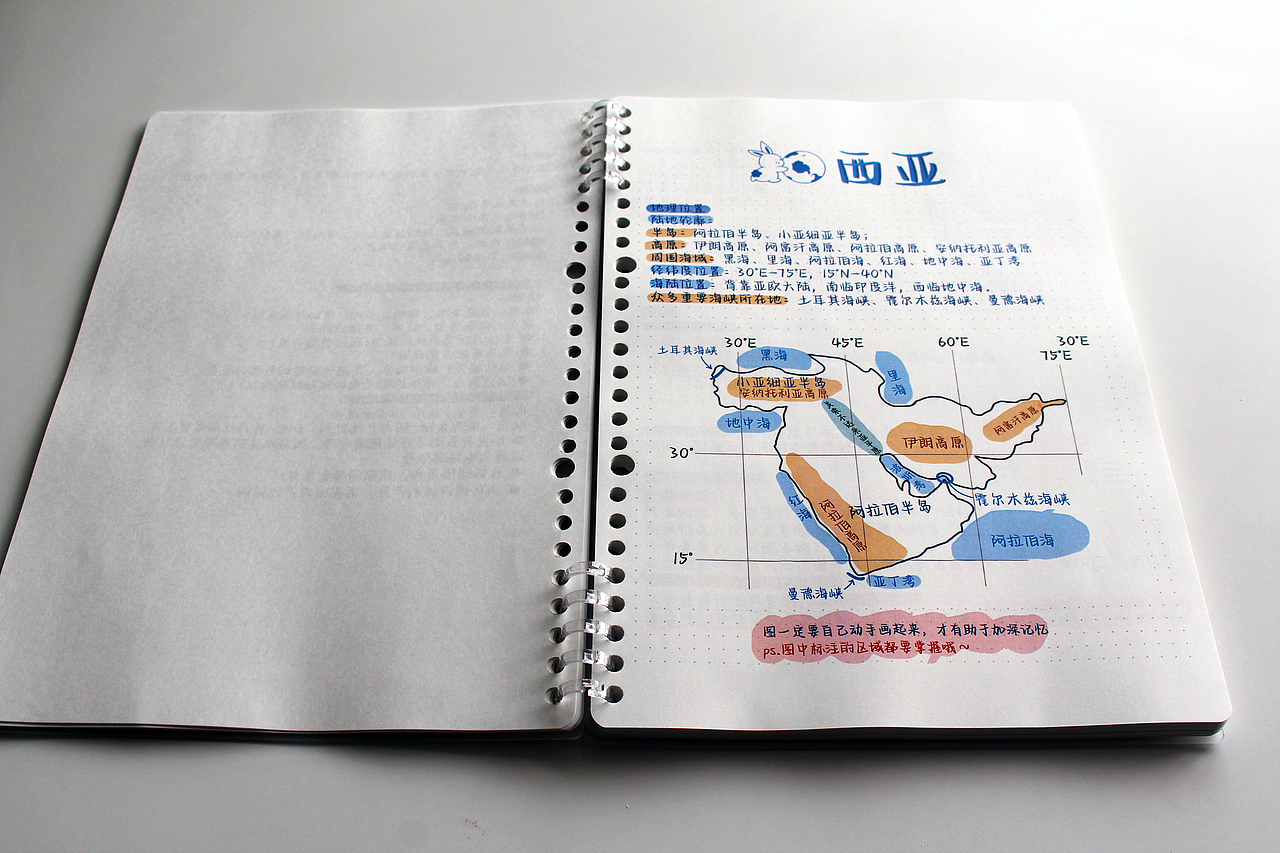 西亚
地理位置
陆地轮廓:
半岛:阿拉伯半岛、小亚细亚半岛;
高原:伊朗高原、阿富汗高原、阿拉伯高原、安纳托利亚高原
周围海域:黑海、里海、阿拉伯海、红海、地中海、亚丁湾
经纬度位置:30°E-75°E, 15°N-40°N
海陆位置:背靠亚欧大陆,南临印度洋,西临地中海。
众多重要海峡所在地:土耳其海峡、霍尔木兹海峡、曼德海峡
30°E 45°E 60°E 30°E
75°E
土耳其海峡
黑海
里海
小亚细亚半岛
安纳托利亚高原
阿富汗高原
地中海
美索不达米亚平原
伊朗高原
30°
波斯湾
红海
阿拉伯高原
阿拉伯半岛
霍尔木兹海峡
阿拉伯海
15°
曼德海峡
亚丁湾
图一定要自己动手画起来,才有助于加深记忆
ps.图中标注的区域都要掌握哦~